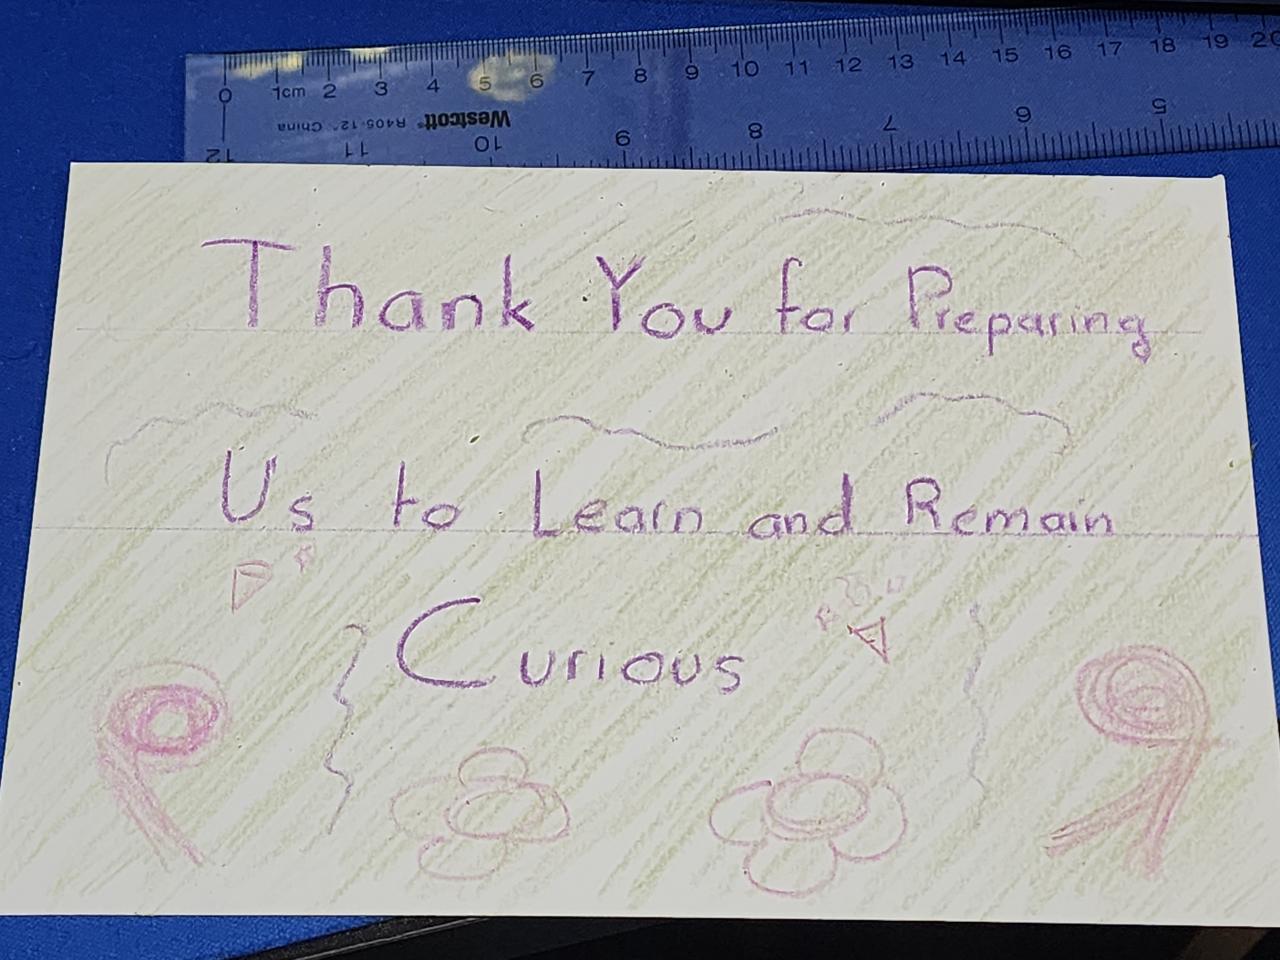 0 1cm 2 3 4 5 6 7 8 9 10 11 12 13 14 15 16 17 18 19 20
Westcott® R405-12" China
12 11 10 9 8 7 6 5
Thank You for Preparing
Us to Learn and Remain
Curious